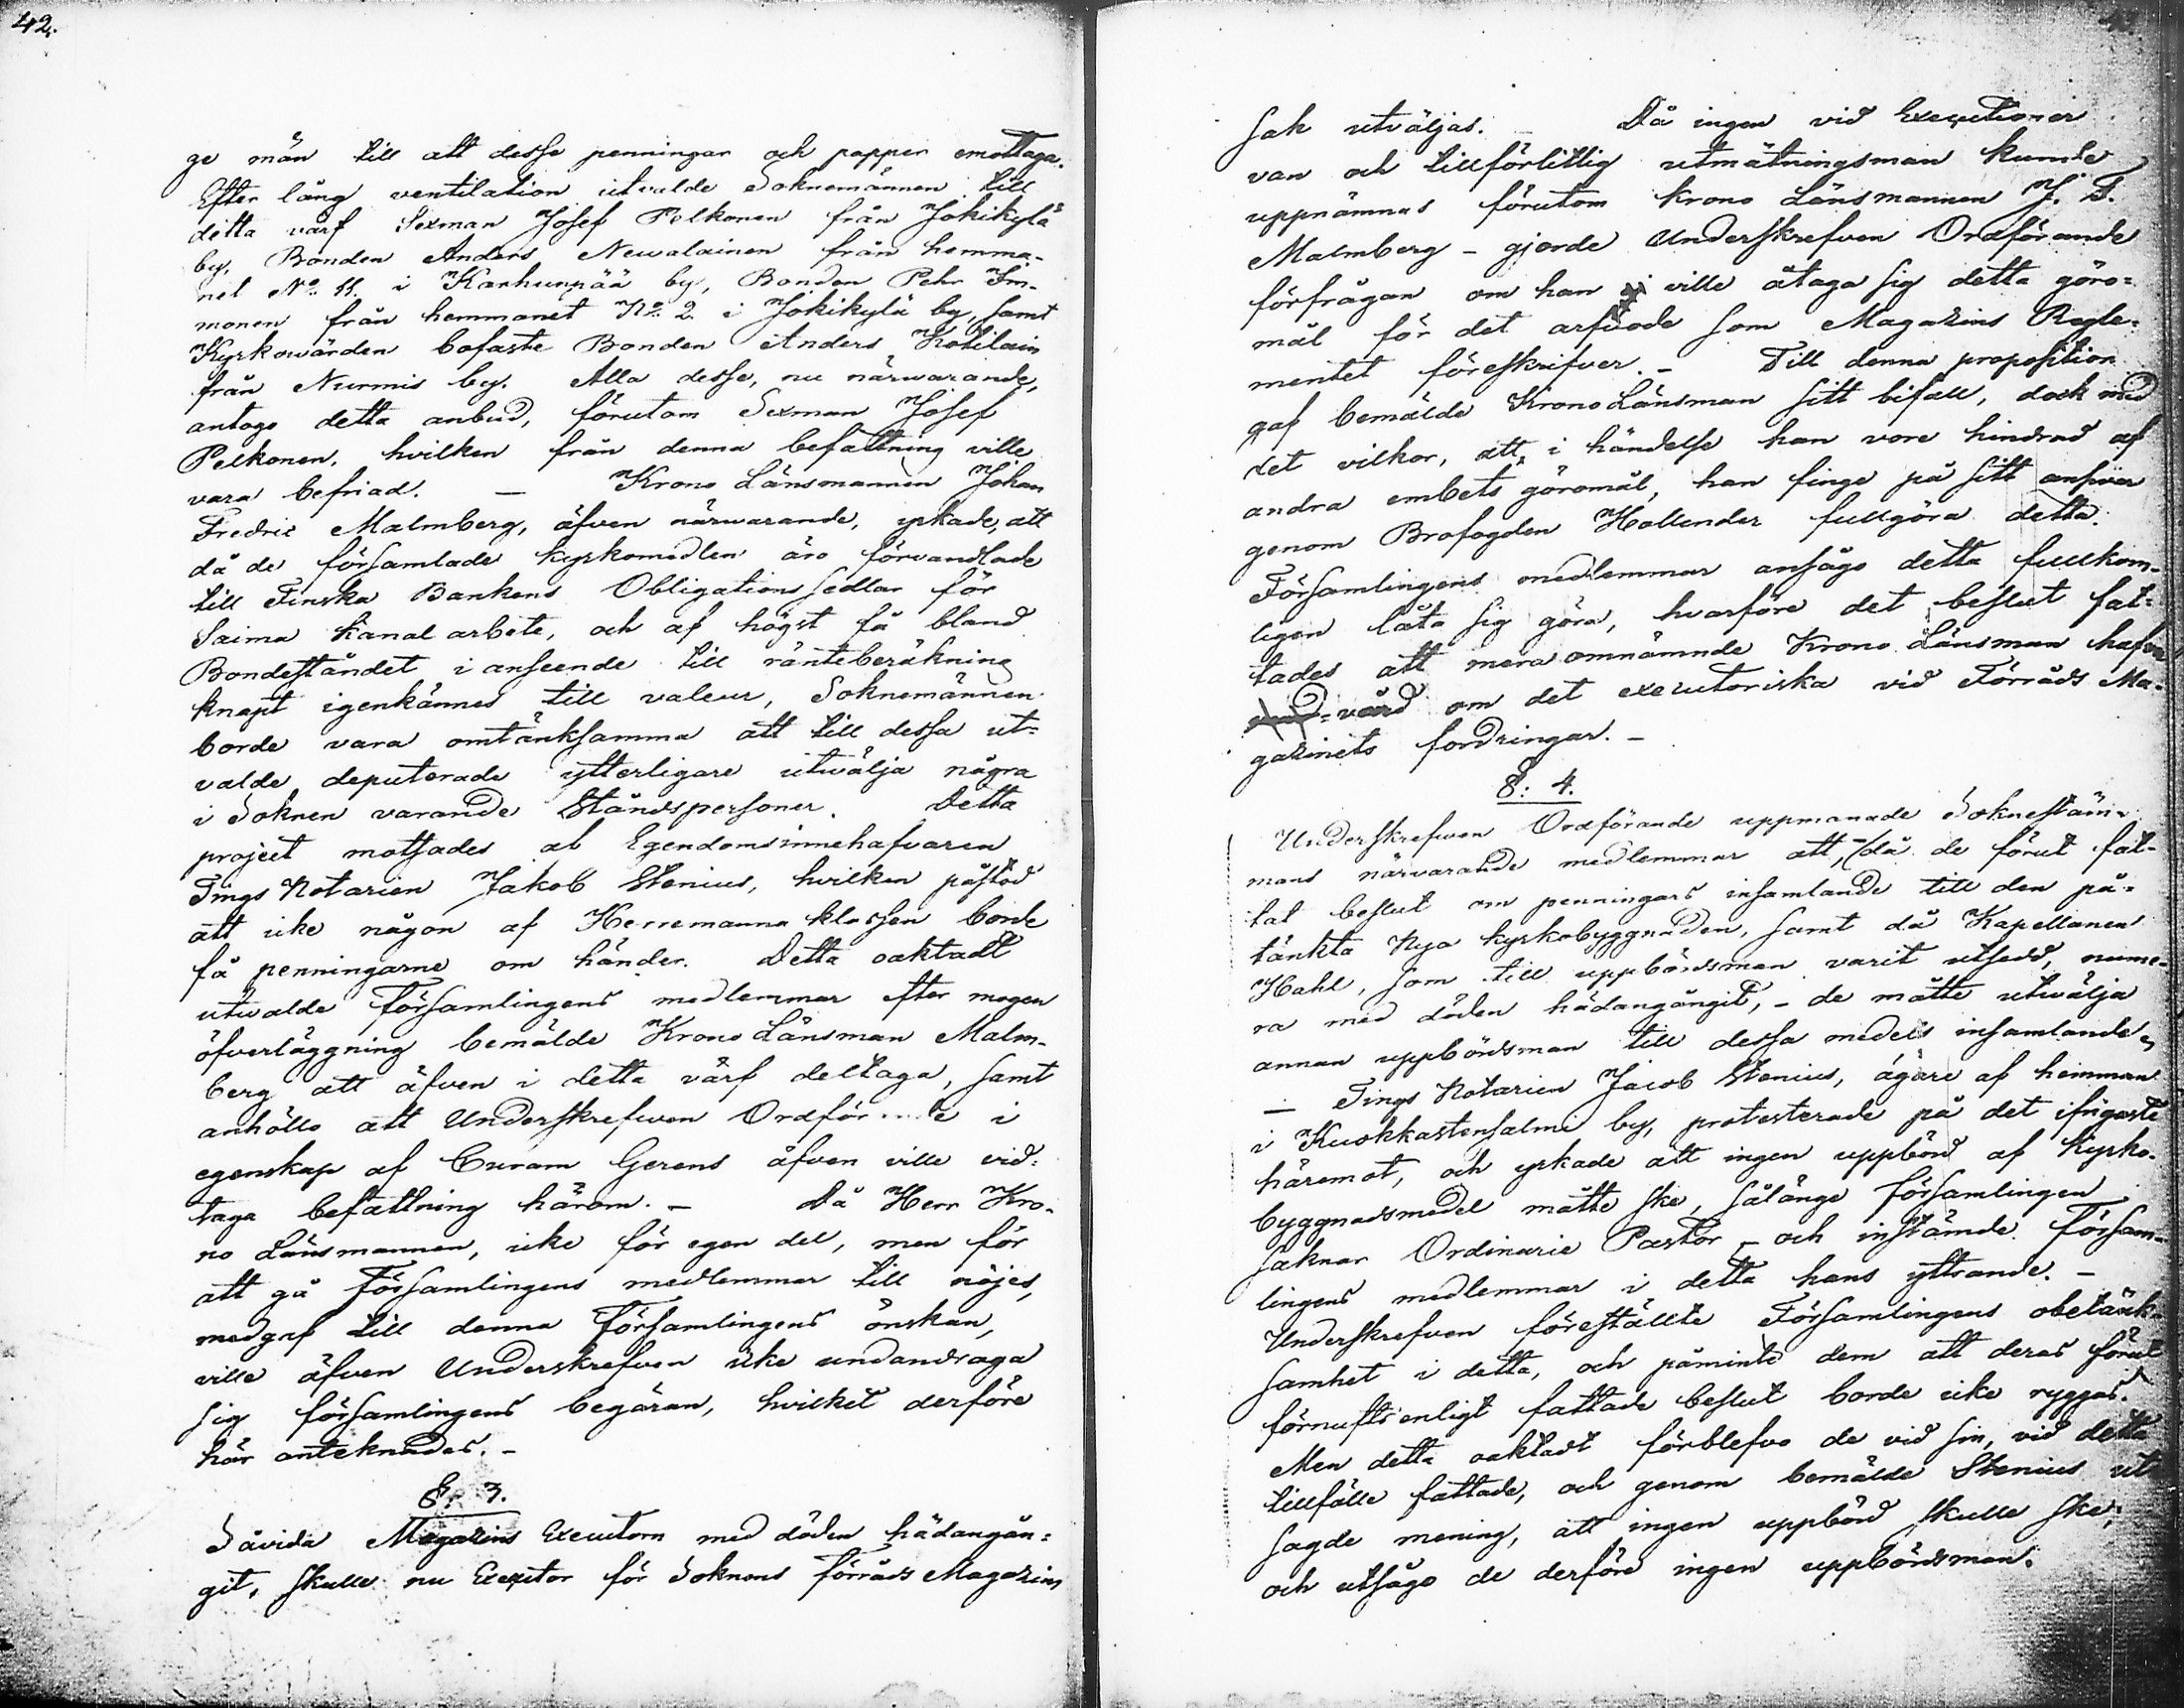 42.
ge män till att desse penningar och papper emottaga.
Efter lång ventilation utvalde Soknemännen till
detta värf Sexman Josef Pelkonen från Jokikylä
by, Bonden Anders Newalainen från hemma-
net No. 11. i Karhunpää by, Bonden Pehr Im-
monen från hemmanet No. 2. i Jokikylä by, samt
Kyrkowärden bofaste Bonden Anders Kotilain
från Nurmis by. Alla desse, nu närwarande,
antogo detta anbud, förutom Sexman Josef
Pelkonen, hvilken från denna befattning ville
vara befriad. — Krono Länsmannen Johan
Fredric Malmberg, äfven närwarande, yrkade, att
då de församlade kyrkomedlen äro förvandlade
till Finska Bankens Obligations sedlar för
Saima Kanal arbete, och af högst få bland
Bondeståndet i anseende till ränteberäkning
knapt igenkännes till valeur, Soknemännen
borde vara omtänksamma att till dessa ut-
valde deputerade ytterligare utwälja några
i Soknen varande Ståndspersoner. Detta
project motsades af Egendomsinnehafvaren
Tings Notarien Jakob Stenius, hvilken påstod
att icke någon af Herremanna klassen borde
få penningarne om händer. Detta oaktadt
utvalde Församlingens medlemmar efter mogen
öfverläggning bemälde Krono Länsman Malm-
berg att äfven i detta värf deltaga, samt
anhöllo att Underskrefven Ordförande i
egenskap af Curam Gerens äfven ville vid-
taga befattning härom. — Då Herr Kro-
no Länsmannen, icke för egen del, men för
att gå Församlingens medlemmar till nöjes,
medgaf till denna Församlingens önskan,
ville äfven Underskrefven icke undandraga
sig församlingens begäran, hvilket derföre
här anteknades. —
§. 3.
Såvida Magazins Executorn med döden hädangån-
git, skulle nu Executor för Soknens Förråds Magazins
sak utväljas. — Då ingen vid Executioner
van och tillförlitlig utmätningsman kunde
uppnämnas förutom Krono Länsmannen J. F.
Malmberg — gjorde Underskrefven Ordförande
förfrågan om han ville åtaga sig detta göro-
mål för det arfvode som Magazins Regle-
mentet föreskrifver. — Till denna proposition
gaf bemälde Krono Länsman sitt bifall, dock med
det vilkor, att, i händelse han vore hindrad af
andra embets göromål, han finge på sitt answar
genom Brofogden Hollender fullgöra detta.
Församlingens medlemmar ansågo detta fullkom-
ligen låta sig göra, hvarföre det beslut fat-
tades att mera omnämnde Krono Länsman hafva
vård om det executoriska vid Förråds Ma-
gazinets fordringar. —
§: 4.
Underskrefven Ordförande uppmanade Soknestäm-
mans närvarande medlemmar att, (då de förut fat-
tat beslut om penningars insamlande till den på-
tänkta Nya kyrkobyggnaden, samt då Kapellanen
Hahl, som till uppbördsman varit utsedd, nume-
ra med döden hädangångit, — de måtte utwälja
annan uppbördsman till dessa medels insamlande.
— Tings Notarien Jacob Stenius, ägare af hemman
i Kuokkastensalmi by, protesterade på det ifrigaste
häremot, och yrkade att ingen uppbörd af Kyrko-
byggnadsmedel måtte ske, sålänge församlingen
saknar Ordinarie Pastor — och instämde Försam-
lingens medlemmar i detta hans yttrande. —
Underskrefven föreställte Församlingens obetänk-
samhet i detta, och påminte dem att deras förut
förnufts enligt fattade beslut borde icke ryggas.
Men detta oaktadt förblefvo de vid sin, vid detta
tillfälle fattade, och genom bemälde Stenius ut
sagde mening, att ingen uppbörd skulle ske;
och utsågo de derföre ingen uppbördsman.